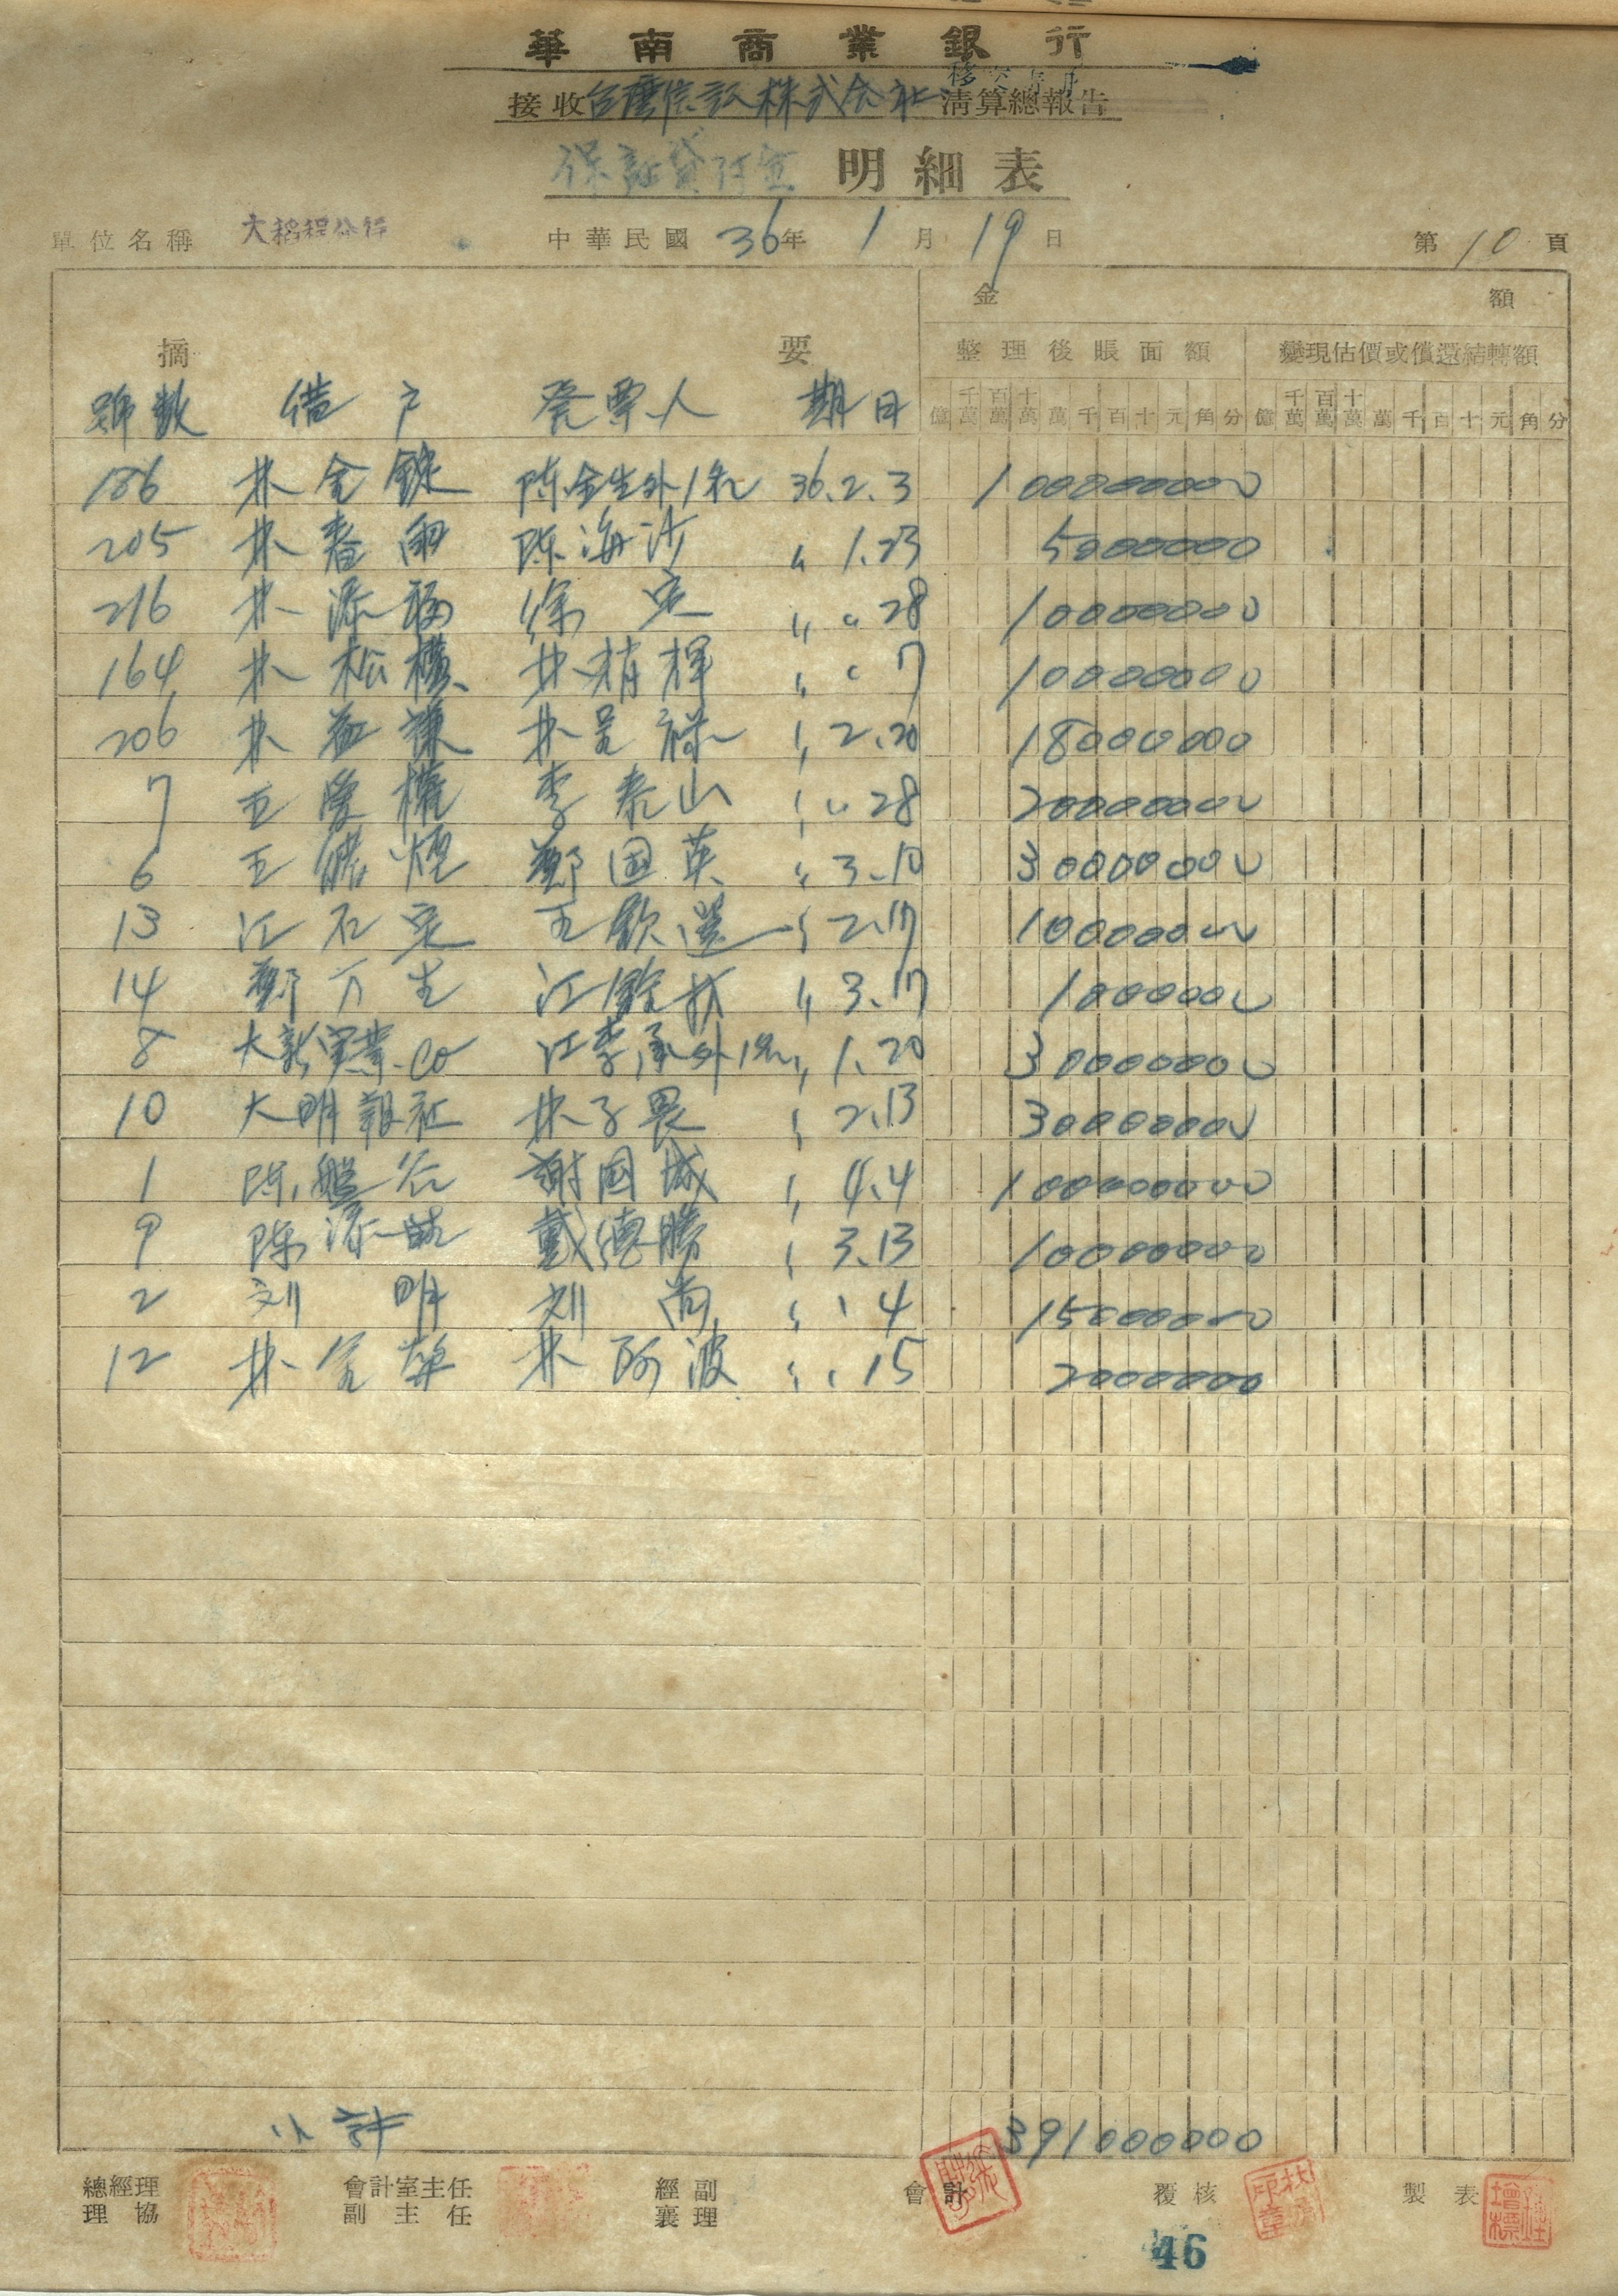 華南商業銀行
接收台湾信託株式会社清算總報告
保証貸付金 明細表
單位名稱 大稻埕分行 中華民國 36年 1月 19日 第 10 頁
金額
摘要 整理後賬面額 變現估價或償還結轉額
號數 借戶 發票人 期日 億 千萬 百萬 十萬 萬 千 百 十 元 角 分 億 千萬 百萬 十萬 萬 千 百 十 元 角 分
186 林金 陈金生外1名 36.2.3 1000000000
205 林春雨 陈海沙 〃 1.23 50000000
216 林添福 徐 〃 〃 28 100000000
164 林松 林精輝 〃 〃 7 100000000
206 林益謙 林 〃 2.20 180000000
7 王 權 李泰山 〃 〃 28 200000000
6 王 煙 鄭国英 〃 3.10 300000000
13 江石定 王欽選 〃 2.17 100000000
14 鄭万生 江 〃 3.17 10000000
8 大新実業.Co 江李 外1名 〃 1.20 300000000
10 大明報社 林子畏 〃 2.13 300000000
1 陈盤谷 謝国城 〃 4.4 1000000000
9 陈添 戴德勝 〃 3.13 100000000
2 刘明 刘尚 〃 〃 4 150000000
12 林 林阿波 〃 〃 15 20000000
小計 3910000000
總經理 會計室主任 經副 會計 覆核 製表
理協 副主任 襄理
46